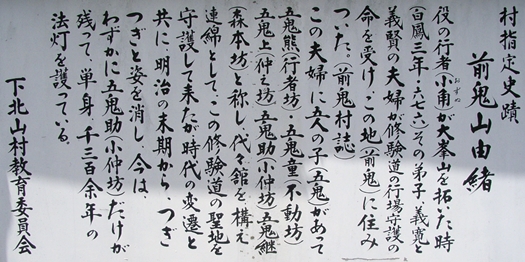 村指定史蹟
前鬼山由緒
役の行者(小角おずの)が大峯山を拓いた時
(白鳳三年・六七六)その弟子、義寛と
義賢の夫妇が修験道の行場守護の
命を受け、この地(前鬼)に住み
ついた。(前鬼村誌)
この夫婦に五人の子(五鬼)があって
五鬼熊(行者坊)・五鬼童(不動坊)
五鬼上(仲之坊)五鬼助(小仲坊)五鬼継
(森本坊)と称し、代々舘を構え
連綿として、この修験道の聖地を
守護して来たが時代の変遷と
共に、明治の末期から、つぎ
つぎと姿を消し、今は、
わずかに五鬼助(小仲坊)だけが
残って、単身、千三百余年の
法灯を護っている。
下北山村教育委員会